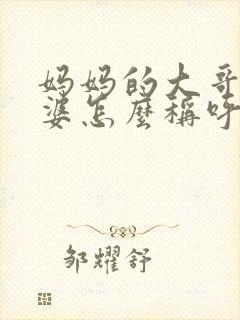 妈妈的大哥
婆怎麼稱呼
邹耀舒